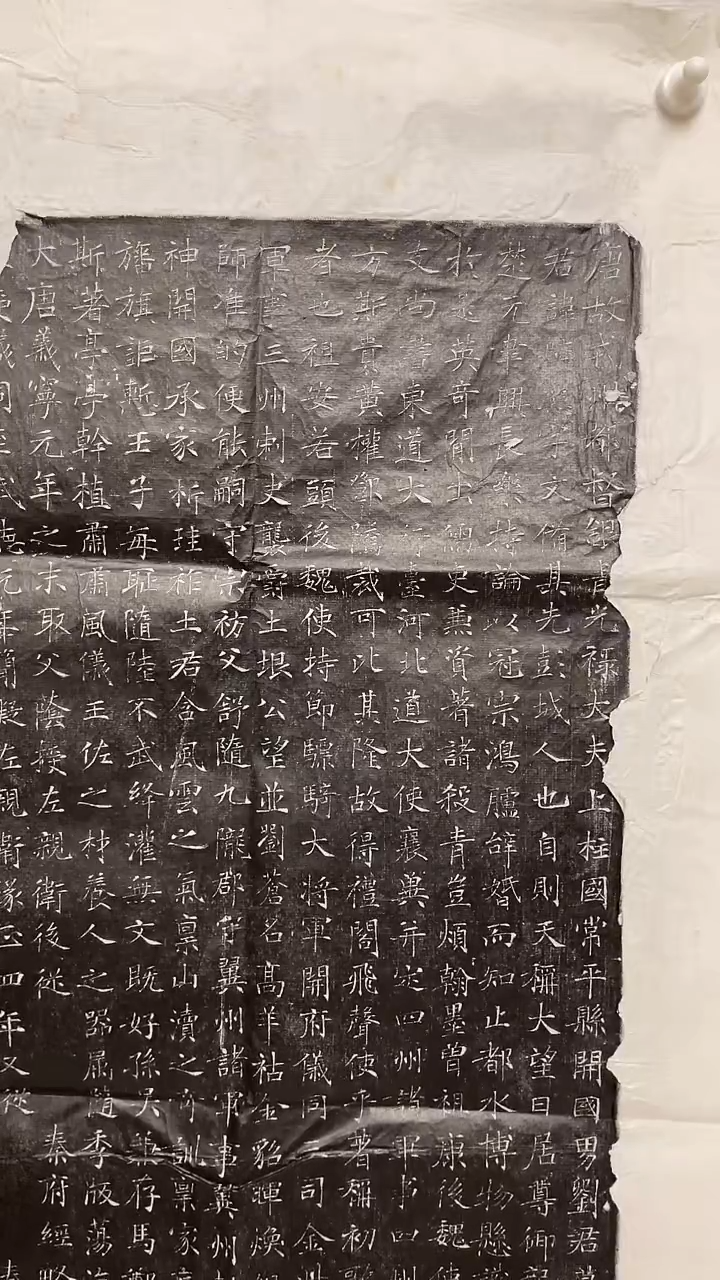 唐故 州都督 光祿大夫上柱國常平縣開國男劉君
君諱 字文 其先彭城人也自則天稱大望日居尊御
楚元 興長樂 論以冠宗鴻臚辞 而知止都水博物
英奇 士儒 更兼資著諸殺青豈煩翰墨曾祖康後魏使
文尚書東道大行臺河北道大使襄 并定四州諸軍事四州
方斯貴黃權 隨 可比其隆故得禮閣飛聲使乎著稱初
者也祖安若頭後魏使持節驃騎大將軍開府儀同三司金州
軍事三州刺史襲爵土垠公望並劉蒼名高羊祜金貂暉煥
師准的便能嗣守宗祊父舒隨九隴郡守翼州諸軍事冀州
神開國承家析珪祚土君含風雲之氣稟山瀆之 訓稟家
旛旗詎慙王子每耻隨陸不武絳灌無文既好孫吳 存馬
斯著亭亭幹植肅肅風儀王佐之材養人之器属隨季版蕩
大唐義寧元年之末取父蔭授左親衛後從 秦府經略
武德元年 左親衛隊正四年又從